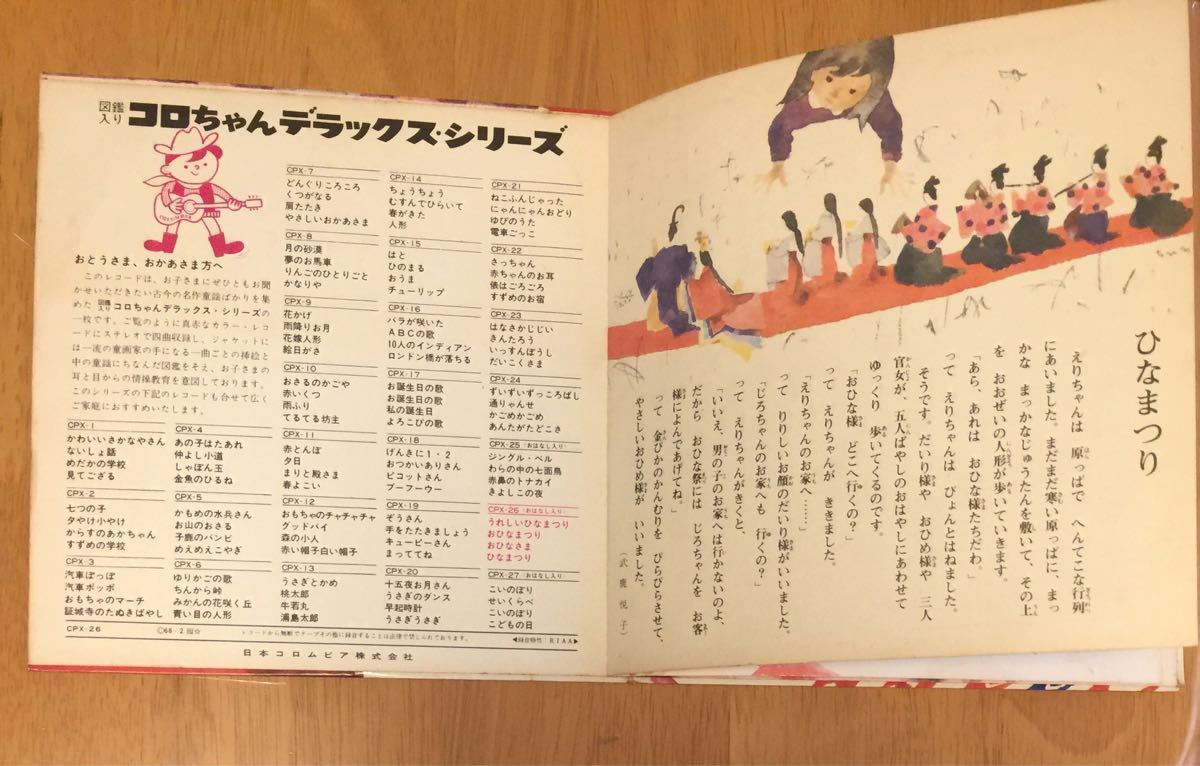 図鑑入り コロちゃんデラックス・シリーズ
COLUMBIA
おとうさま、おかあさま方へ
このレコードは、お子さまにぜひともお聞
かせいただきたい古今の名作童謡ばかりを集
めた 図鑑入り コロちゃんデラックス・シリーズの
一枚です。ご覧のように真赤なカラー・レコ
ードにステレオで四曲収録し、ジャケットに
は一流の童画家の手になる一曲ごとの挿絵と
中の童謡にちなんだ図鑑をそえ、お子さまの
耳と目からの情操教育を意図しております。
このシリーズの下記のレコードも合せて広く
ご家庭におすすめいたします。
CPX-1
かわいいさかなやさん
ないしょ話
めだかの学校
見てござる
CPX-2
七つの子
夕やけ小やけ
からすのあかちゃん
すずめの学校
CPX-3
汽車ぽっぽ
汽車ポッポ
おもちゃのマーチ
証城寺のたぬきばやし
CPX-4
あの子はたあれ
仲よし小道
しゃぼん玉
金魚のひるね
CPX-5
かもめの水兵さん
お山のおさる
子鹿のバンビ
めえめえこやぎ
CPX-6
ゆりかごの歌
ちんから峠
みかんの花咲く丘
青い目の人形
CPX-7
どんぐりころころ
くつがなる
肩たたき
やさしいおかあさま
CPX-8
月の砂漠
夢のお馬車
りんごのひとりごと
かなりや
CPX-9
花かげ
雨降りお月
花嫁人形
絵日がさ
CPX-10
おさるのかごや
赤いくつ
雨ふり
てるてる坊主
CPX-11
赤とんぼ
夕日
まりと殿さま
春よこい
CPX-12
おもちゃのチャチャチャ
グッドバイ
森の小人
赤い帽子白い帽子
CPX-13
うさぎとかめ
桃太郎
牛若丸
浦島太郎
CPX-14
ちょうちょう
むすんでひらいて
春がきた
人形
CPX-15
はと
ひのまる
おうま
チューリップ
CPX-16
バラが咲いた
ABCの歌
10人のインディアン
ロンドン橋が落ちる
CPX-17
お誕生日の歌
お誕生日の歌
私の誕生日
よろこびの歌
CPX-18
げんきに1・2
おつかいありさん
ピコットさん
ブーフーウー
CPX-19
ぞうさん
手をたたきましょう
キューピーさん
まっててね
CPX-20
十五夜お月さん
うさぎのダンス
早起時計
うさぎうさぎ
CPX-21
ねこふんじゃった
にゃんにゃんおどり
ゆびのうた
電車ごっこ
CPX-22
さっちゃん
赤ちゃんのお耳
俵はごろごろ
すずめのお宿
CPX-23
はなさかじじい
きんたろう
いっすんぼうし
だいこくさま
CPX-24
ずいずいずっころばし
通りゃんせ
かごめかごめ
あんたがたどこさ
CPX-25（おはなし入り）
ジングル・ベル
わらの中の七面鳥
赤鼻のトナカイ
きよしこの夜
CPX-26（おはなし入り）
うれしいひなまつり
おひなまつり
おひなさま
ひなまつり
CPX-27（おはなし入り）
こいのぼり
せいくらべ
こいのぼり
こどもの日
CPX-26
©68・2
レコードから無断でテープその他に録音することは法律で禁じられております。
◀録音特性：RIAA▶
日本コロムビア株式会社
ひなまつり
えりちゃんは 原っぱで へんてこな行列
にあいました。まだまだ寒い原っぱに、まっ
かな まっかなじゅうたんを敷いて、その上
を おおぜいの人形が歩いていきます。
「あら、あれは おひな様たちだわ。」
って えりちゃんは ぴょんとはねました。
そうです。だいり様や おひめ様や 三人
官女が、五人ばやしのおはやしにあわせて
ゆっくり 歩いてくるのです。
「おひな様、どこへ行くの？」
って えりちゃんが ききました。
「えりちゃんのお家へ……」
って りりしいお顔のだいり様がいいました。
「じろちゃんのお家へも 行くの？」
って えりちゃんがきくと、
「いいえ、男の子のお家へは行かないのよ、
だから おひな祭には じろちゃんを お客
様によんであげてね。」
って 金ぴかのかんむりを ぴらぴらさせて、
やさしいおひめ様が いいました。
（武鹿 悦子）